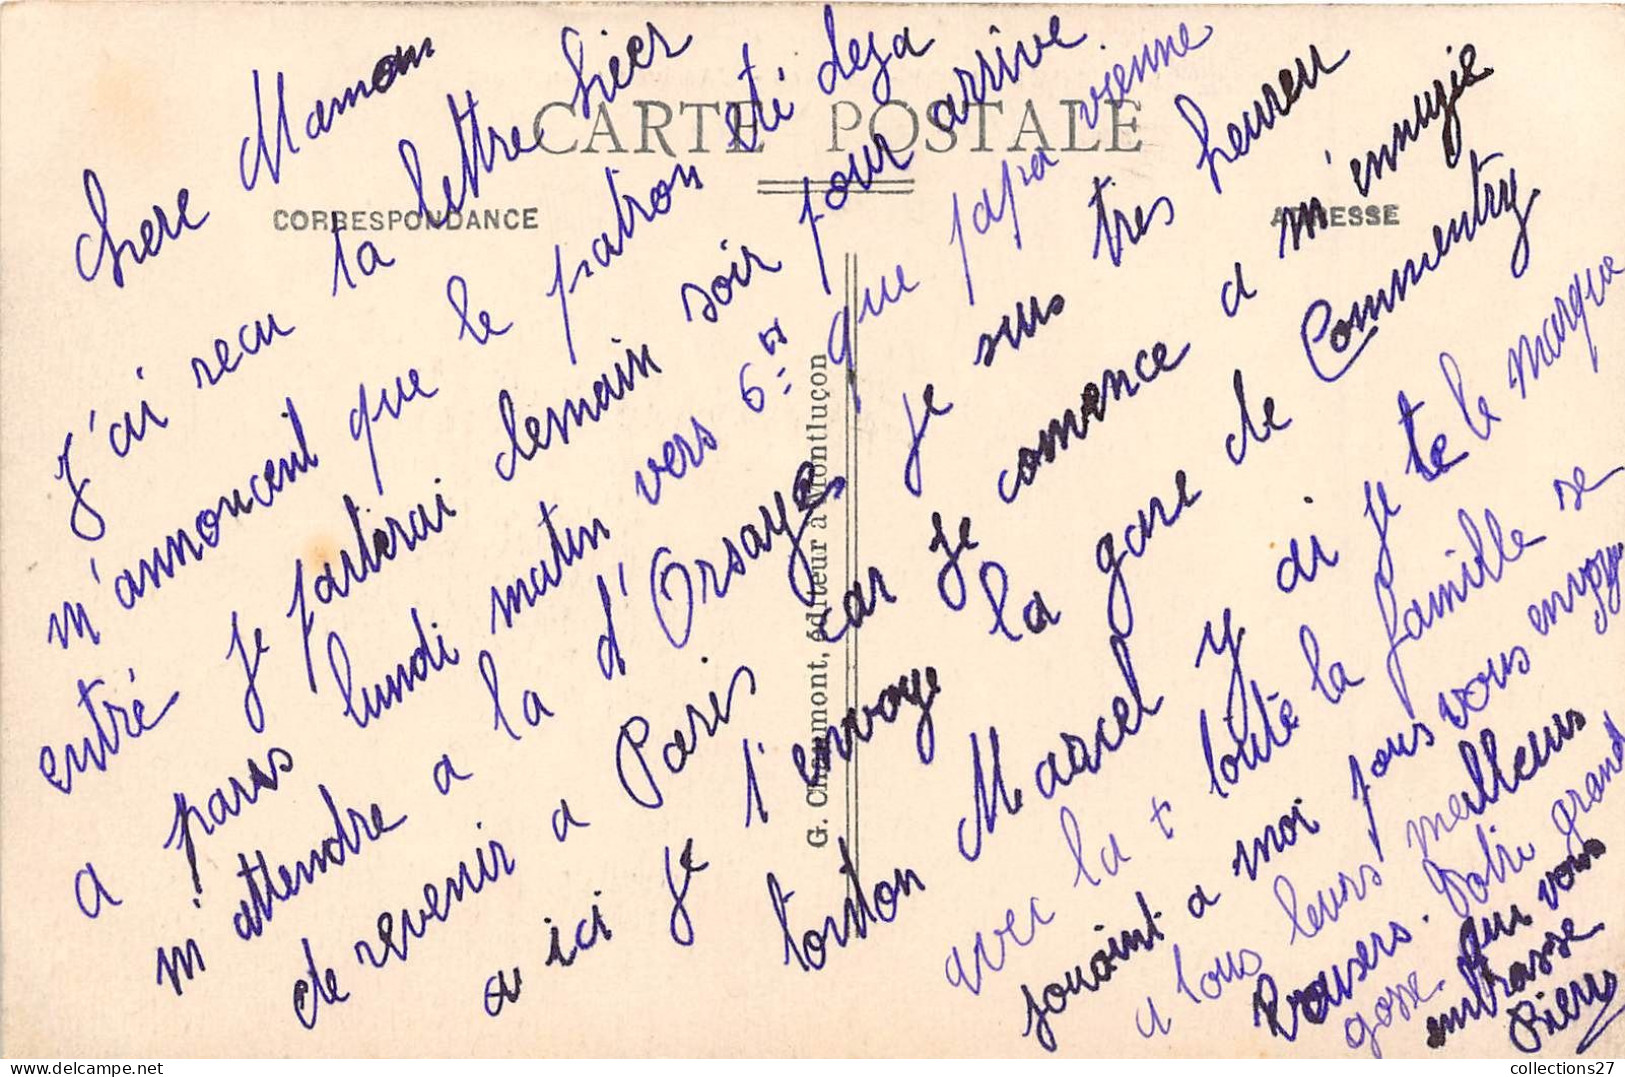 CARTE POSTALE
CORRESPONDANCE
ADRESSE
G. Chaumont, éditeur à Montluçon
Chere Maman
J'ai recu ta lettre hier
m'annoncent que le patron été deja
entré je parterai demain soir pour arrive
a paris lundi matin vers 6 rs que papa vienne
m'attendre a la d'Orsayes je suis tres heureu
de revenir a Paris car je comence a m'ennuyie
a ici je t'envoye la gare de Commentry
tonton Marcel y di je te le marque
avec la + toute la famille se
jouaint a moi pour vous envoye
a tous leurs meilleurs
Baisers. Votre grand
gosse qui vous
embrasse
Pierre
collections27